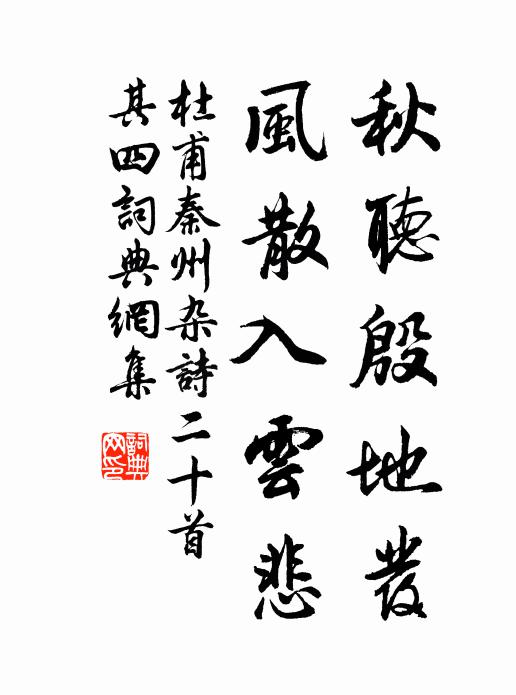 秋聽殷地發
風散入雲悲
杜甫秦州杂詩二十首
其四詞典網集
詞典網印